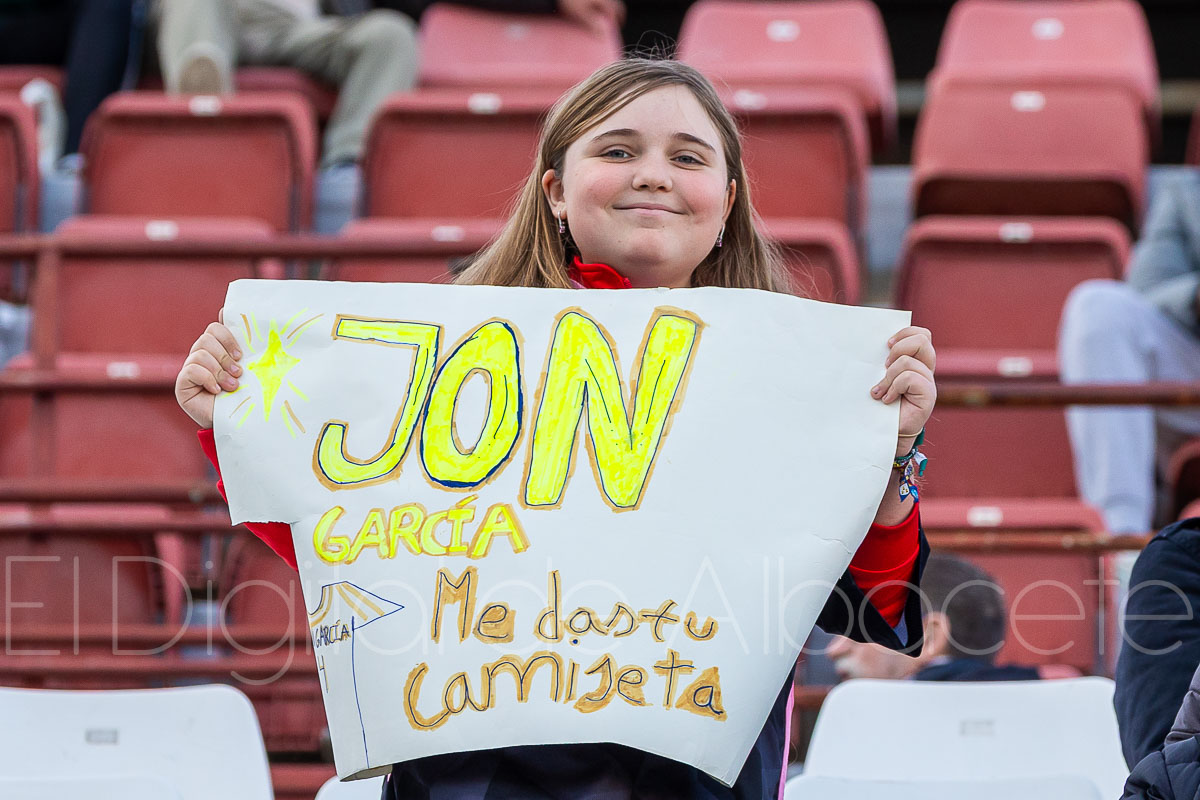 JON
GARCÍA
Me das tu
Camiseta
GARCÍA
4
El Digital de Albacete